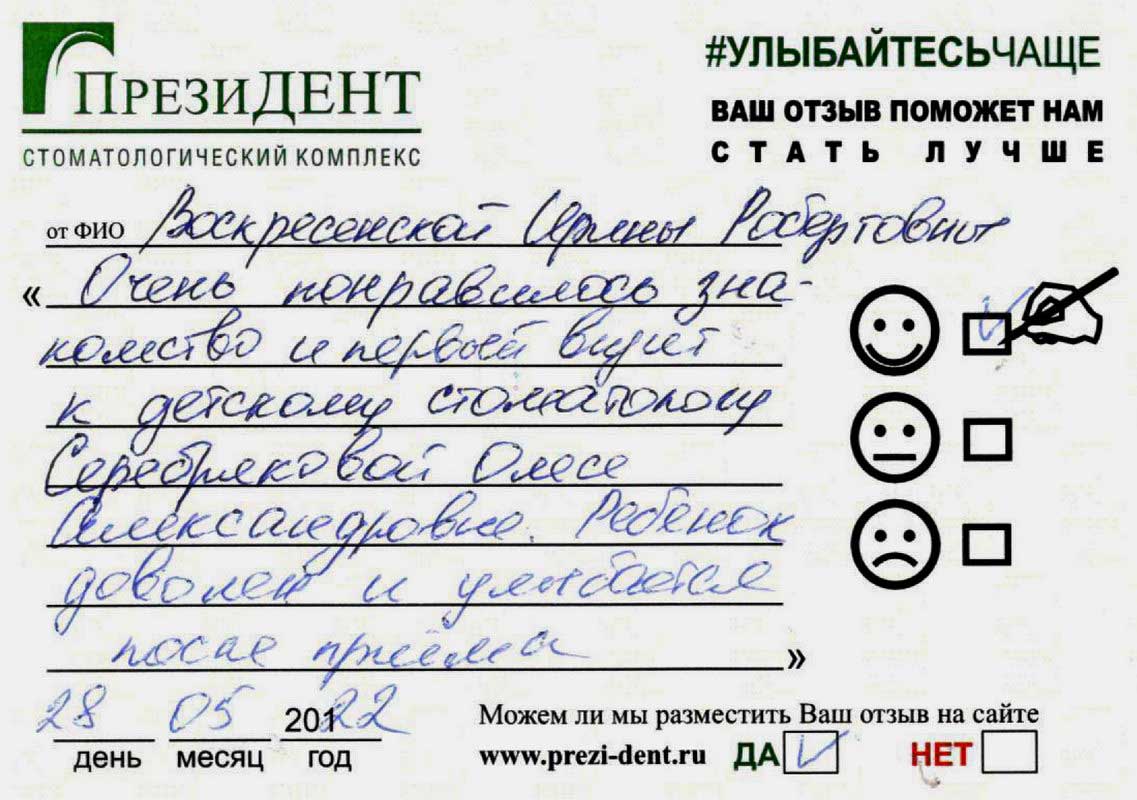 ПрезиДЕНТ
СТОМАТОЛОГИЧЕСКИЙ КОМПЛЕКС
#УЛЫБАЙТЕСЬЧАЩЕ
ВАШ ОТЗЫВ ПОМОЖЕТ НАМ
СТАТЬ ЛУЧШЕ
от ФИО Воскресенской Ирины Робертовны
« Очень понравилось зна-
комство и первый визит
к детскому стоматологу
Серебряковой Олесе
Александровне. Ребенок
доволен и улыбается
после приёма »
28 05 201 22
день месяц год
Можем ли мы разместить Ваш отзыв на сайте
www.prezi-dent.ru ДА НЕТ